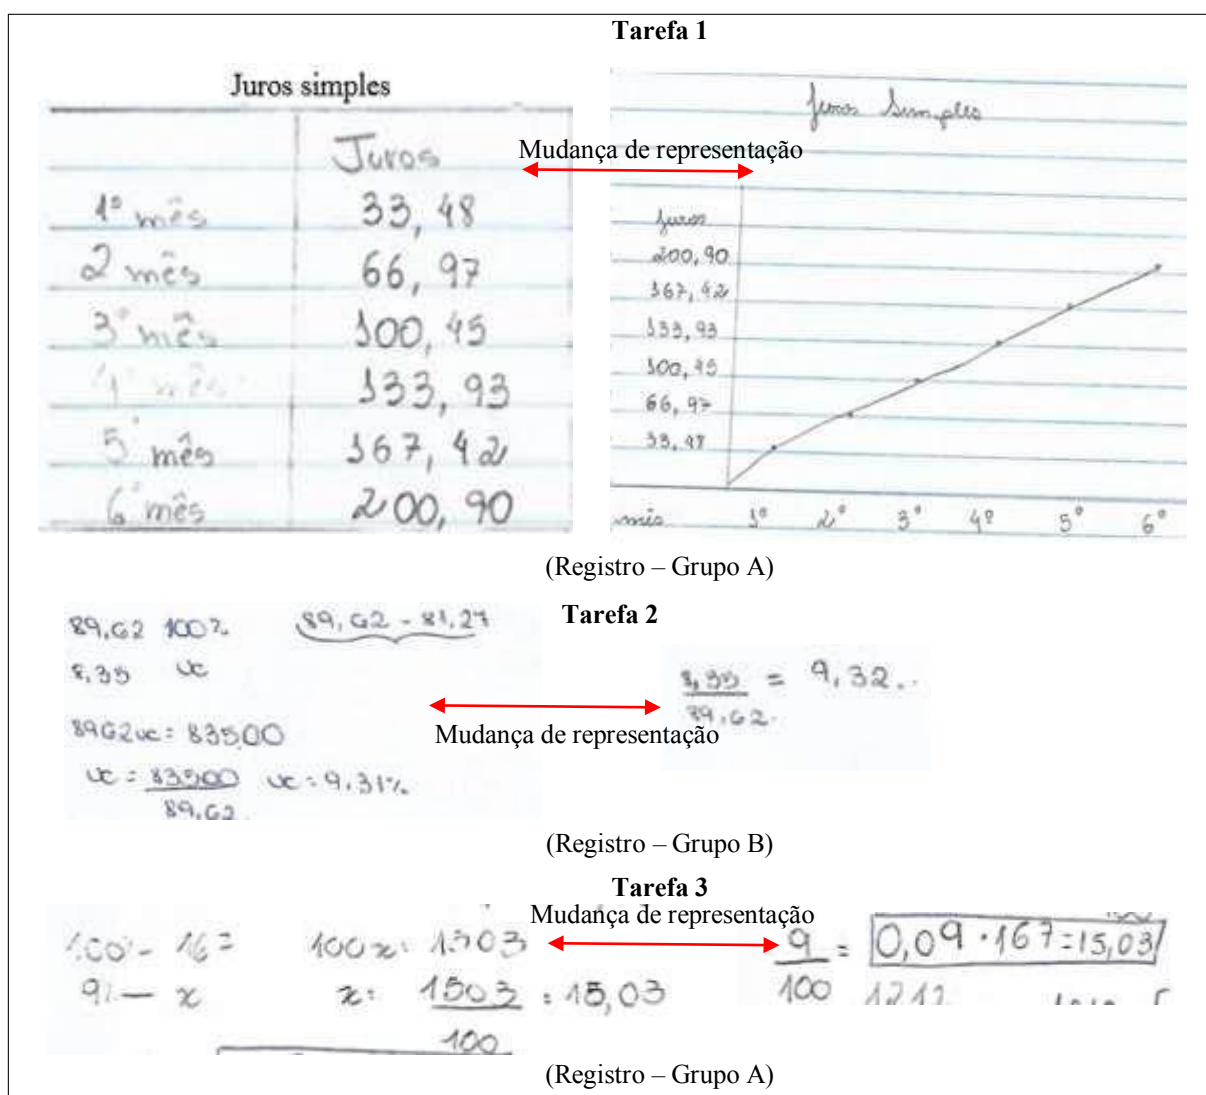 Tarefa 1
Juros simples
Juros
1º mês 33,48
2 mês 66,97
3º mês 100,45
4º mês 133,93
5º mês 167,42
6º mês 200,90
Mudança de representação
Juros Simples
Juros
200,90
167,42
133,93
100,45
66,97
33,48
mês 1º 2º 3º 4º 5º 6º
(Registro – Grupo A)
Tarefa 2
89,62 100% 89,62 - 81,27
8,35 x
8962x = 83500
x = 83500 x = 9,31%
89,62
Mudança de representação
8,35 = 9,32..
89,62
(Registro – Grupo B)
Tarefa 3
Mudança de representação
100% - 167 100x = 1503
9% - x x = 1503 = 15,03
100
9 = 0,09 · 167 = 15,03
100
(Registro – Grupo A)